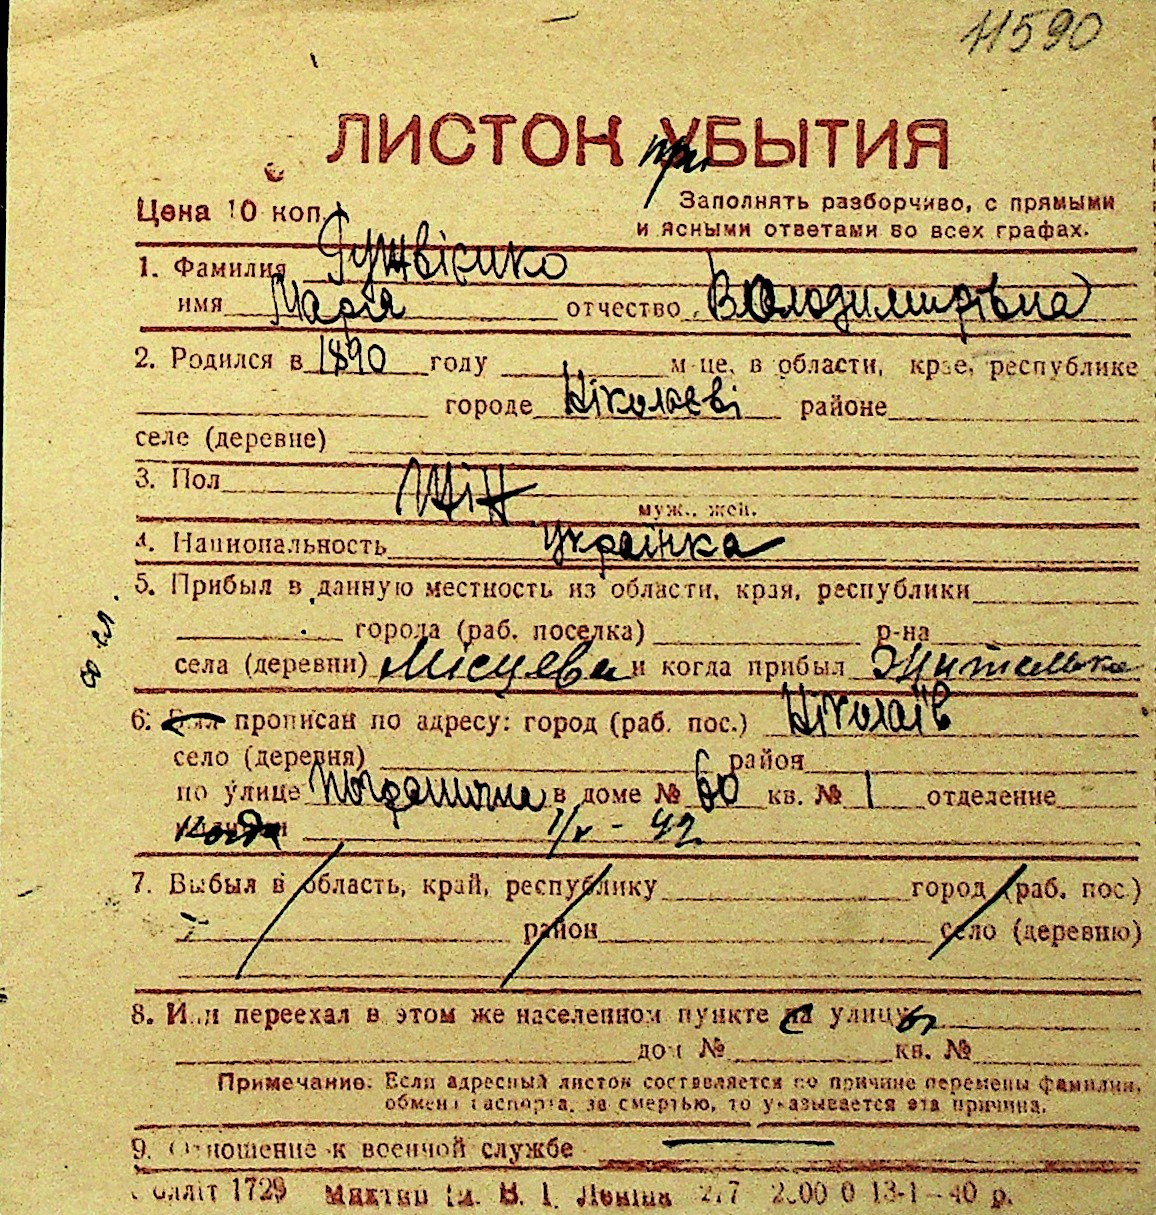 11590
ЛИСТОК при УБЫТИЯ
Цена 10 коп.
Заполнять разборчиво, с прямыми
и ясными ответами во всех графах.
1. Фамилия
имя Марія отчество Володимирівна
2. Родился в 1890 году м-це, в области, крае, республике
городе Ніколаєві районе
селе (деревне)
3. Пол жін
муж., жен.
4. Национальность українка
5. Прибыл в данную местность из области, края, республики
города (раб. поселка) р-на
села (деревни) Місцева и когда прибыл жителька
6. Был прописан по адресу: город (раб. пос.) Ніколаїв
село (деревня) район
по улице Погранична в доме № 60 кв. № 1 отделение
когда 1/V - 42
7. Выбыл в область, край, республику город (раб. пос.)
район село (деревню)
8. Или переехал в этом же населенном пункте с улицы
дом № кв. №
Примечание: Если адресный листок составляется по причине перемены фамилии,
обмена паспорта, за смертью, то указывается эта причина.
9. Отношение к военной службе
1729 им. В. І. Леніна 217 13-1-40 р.